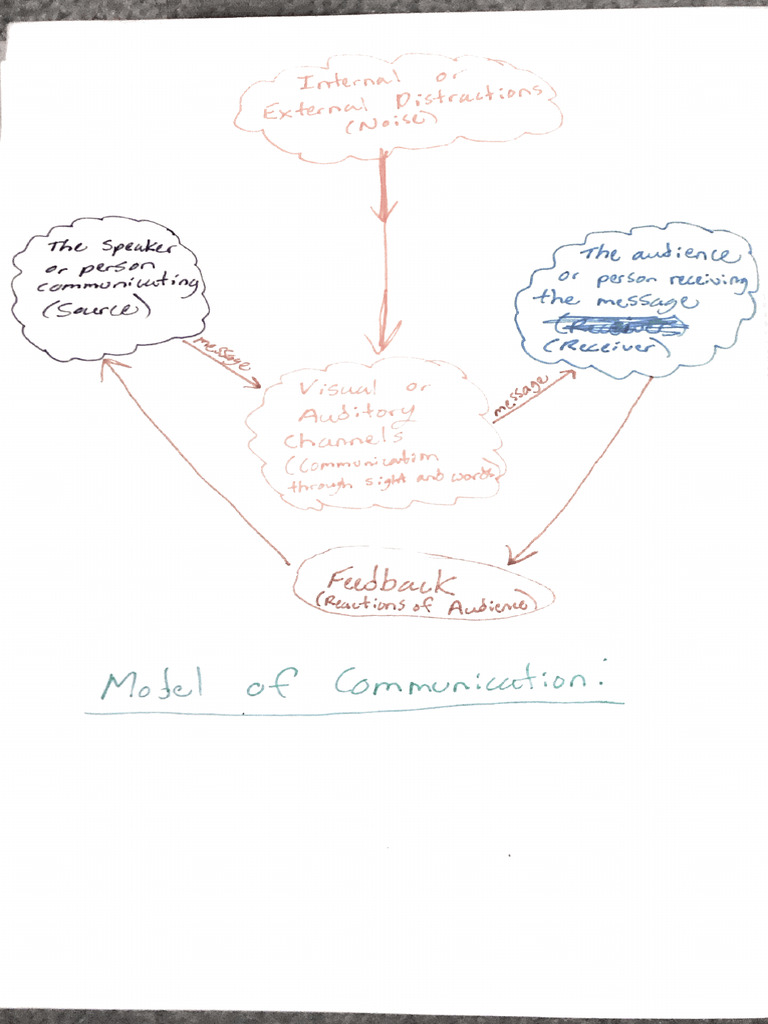 Internal or
External Distractions
(Noise)
The Speaker
or person
communicating
(Source)
The audience
or person receiving
the message
(Receiver)
message
message
Visual or
Auditory
Channels
(Communication
through sight and words)
Feedback
(Reactions of Audience)
Model of Communication: